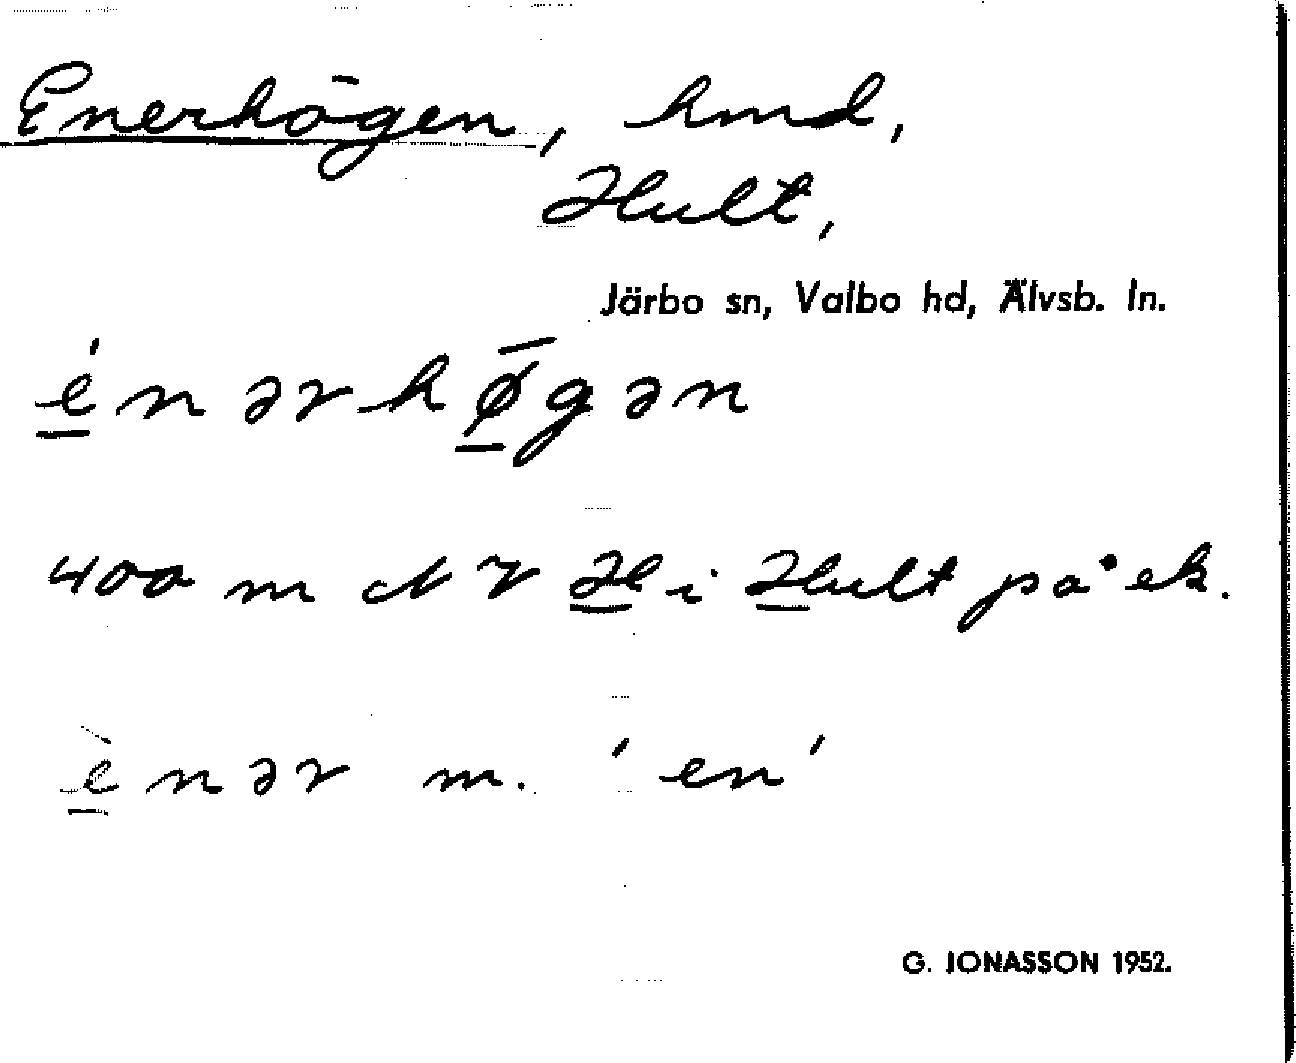 Enerhögen, hmd,
Hult,
Järbo sn, Valbo hd, Älvsb. ln.
énərhø̄gən
400 m NV H i Hult på ek.
ènər m. 'en'
G. JONASSON 1952.